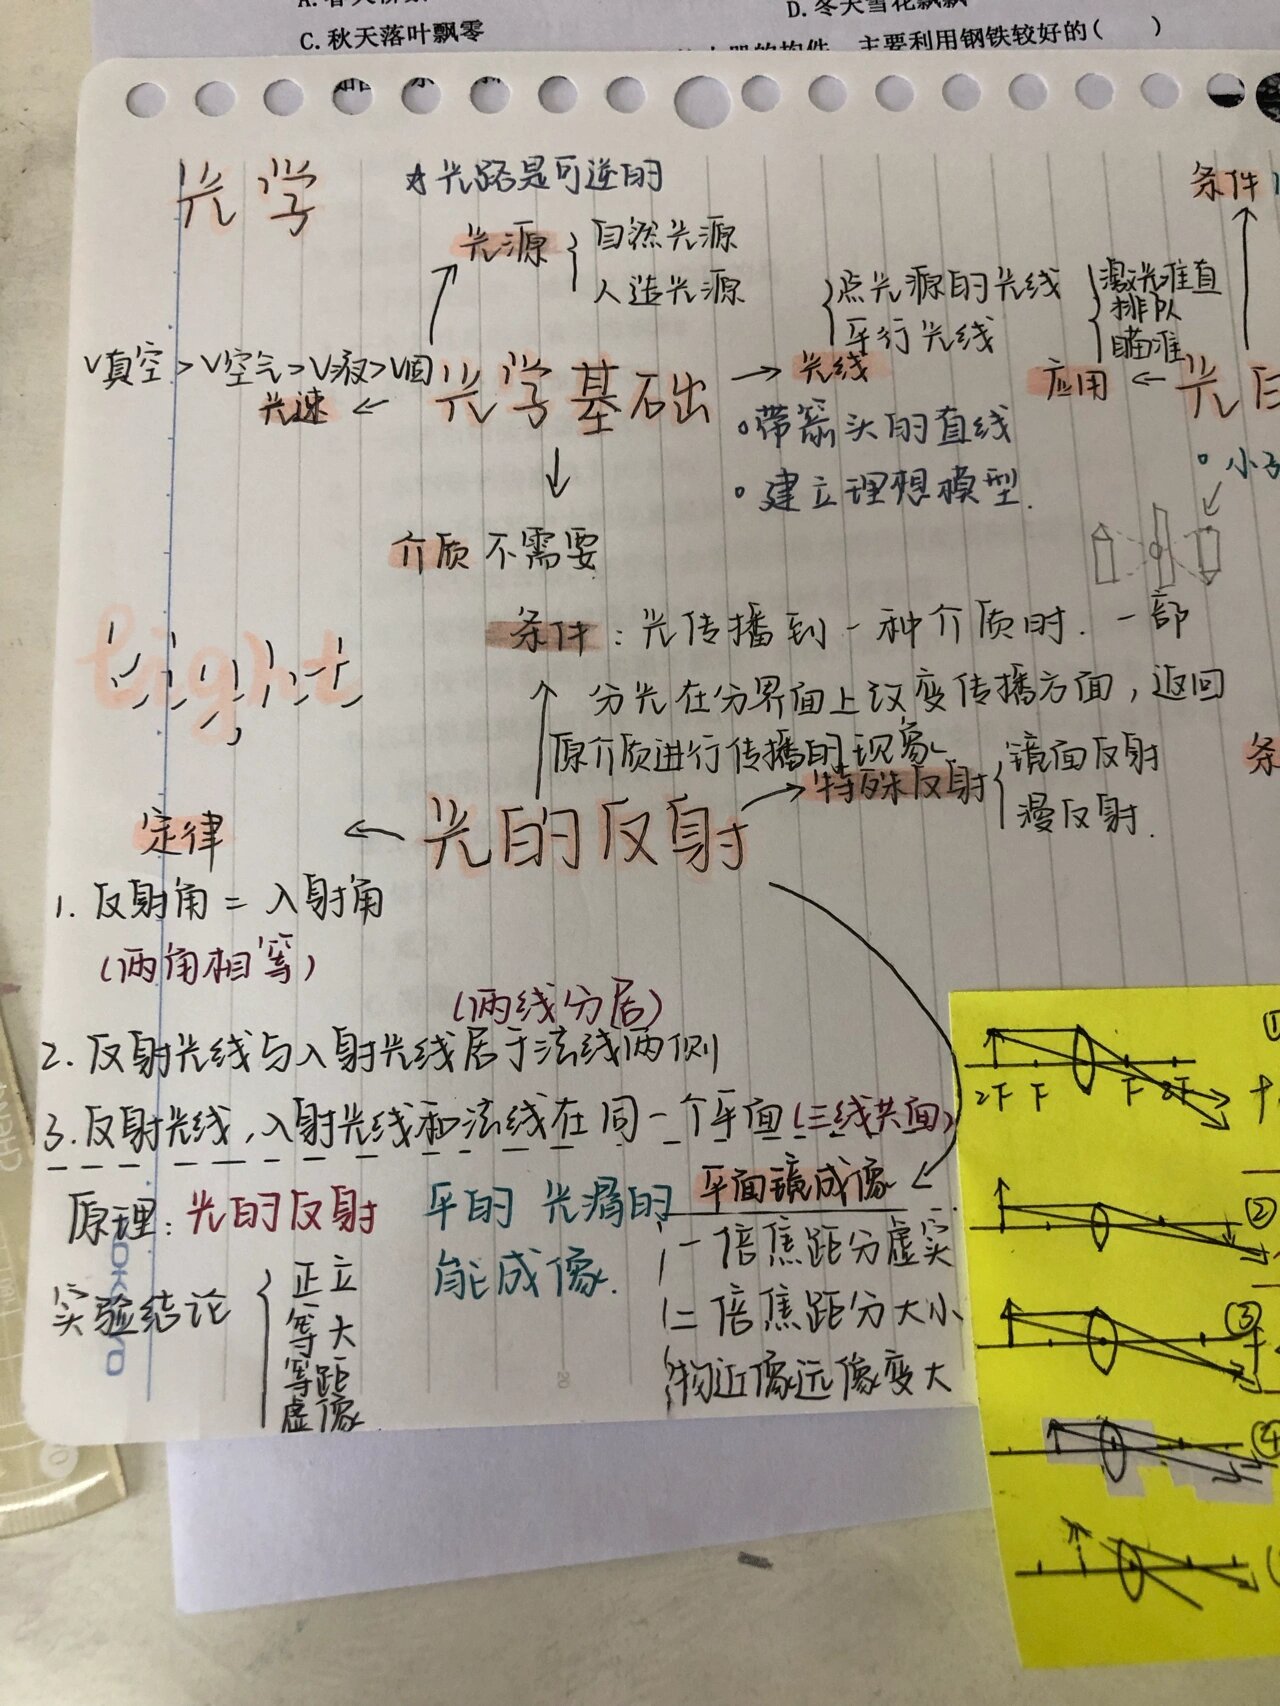 C.秋天落叶飘零
D.冬天雪花飘飘
主要利用钢铁较好的( )
光学
☆光路是可逆的
条件
光源
自然光源
人造光源
点光源的光线
平行光线
激光准直
排队
瞄准
V真空>V空气>V液>V固
光速
光学基础
光线
应用
光
•带箭头的直线
•建立理想模型.
介质 不需要
light
条件:光传播到一种介质时.一部
分光在分界面上改变传播方面,返回
原介质进行传播的现象
特殊反射
镜面反射
漫反射.
条
定律
光的反射
1.反射角=入射角
(两角相等)
(两线分居)
2.反射光线与入射光线居于法线两侧
3.反射光线,入射光线和法线在同一个平面(三线共面)
原理:光的反射
平的 光滑的
能成像.
平面镜成像
一倍焦距分虚实
二倍焦距分大小
物近像远像变大
实验结论
正立
等大
等距
虚像
2F F F 2F
①
②
③
④